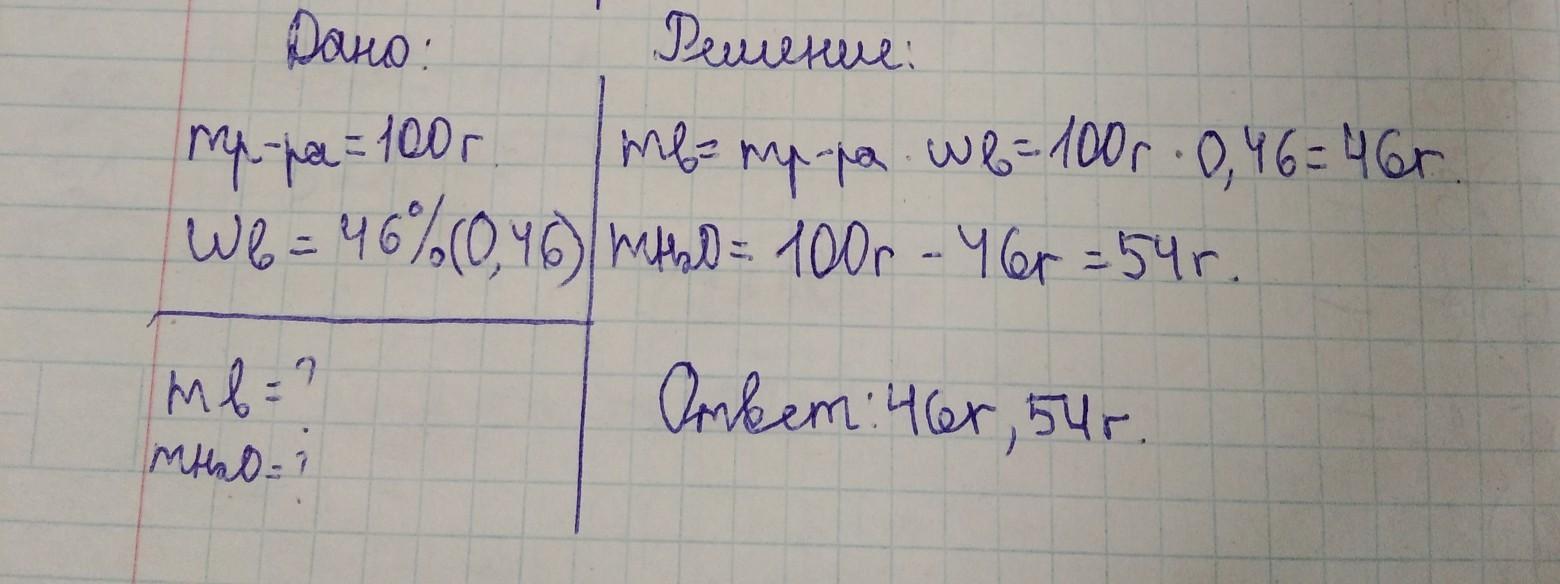 Дано:
mр-ра = 100г.
wв = 46% (0,46)
mв = ?
mH₂O = ?
Решение:
mв = mр-ра · wв = 100г · 0,46 = 46г.
mH₂O = 100г - 46г = 54г.
Ответ: 46г, 54г.